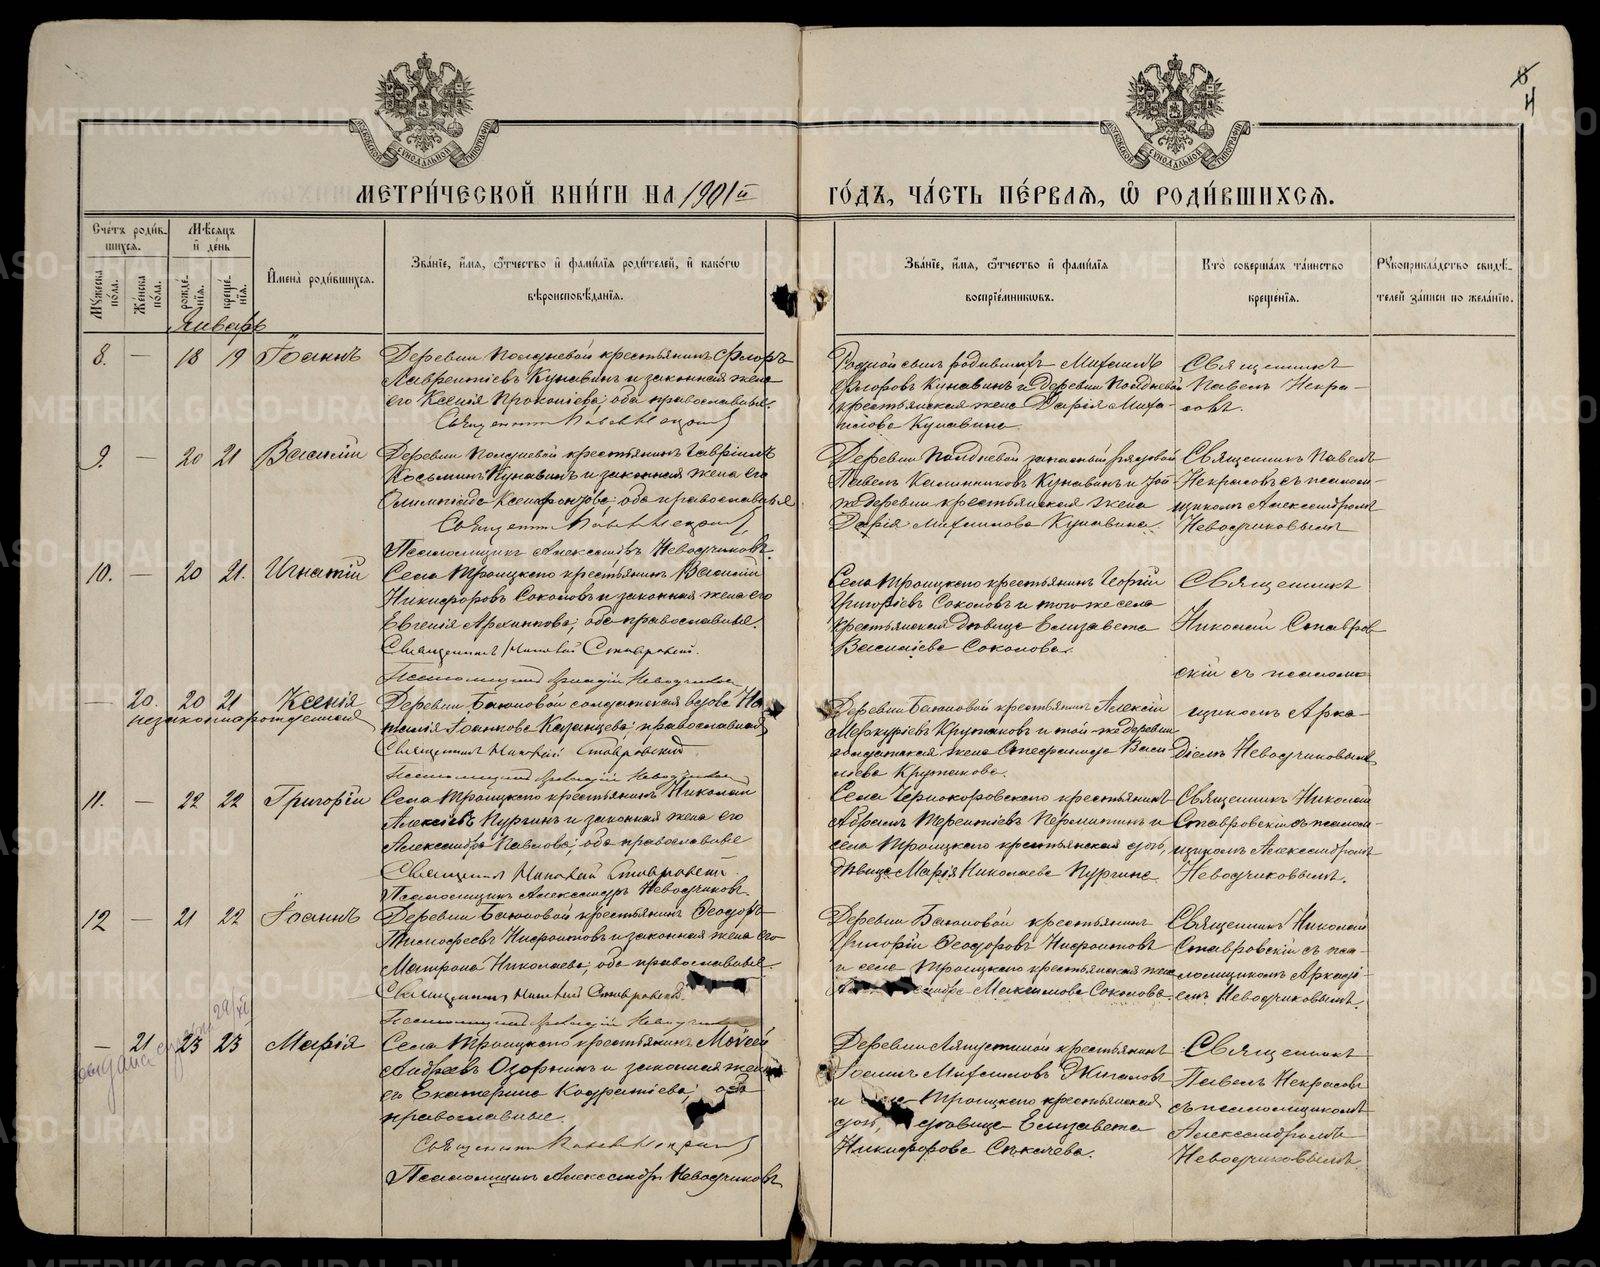 8
4
МЕТРИ́ЧЕСКОЙ КНИ́ГИ НА 1901й ГО́ДЪ, ЧА́СТЬ ПЕ́РВАЯ, Ѡ РОДИ́ВШИХСЯ.
Сче́тъ роди́вшихся.
Му́жеска по́ла.
Же́нска по́ла.
Мѣ́сяцъ и҆ де́нь
рожде́нїя.
креще́нїя.
И҆мена̀ роди́вшихся.
Зва́нїе, и҆́мя, ѻ҆́тчество и҆ фами́лїя роди́телей, и҆ како́гѡ вѣроисповѣ́данїя.
Зва́нїе, и҆́мя, ѻ҆́тчество и҆ фами́лїя воспрїе́мниковъ.
Кто̀ соверша́лъ та́инство креще́нїя.
Рꙋкоприкла́дство свидѣ́телей за́писи по жела́нїю.
Январь
8. — 18 19 Іоаннъ
Деревни Полдневой крестьянинъ Флоръ
Лаврентіевъ Кунавинъ и законная жена
его Ксенія Прокопіева; оба православные.
Священникъ Павелъ Некрасовъ
Родной сынъ родившихъ Михаилъ
Кунавинъ и Деревни Полдневой
крестьянская жена Дарія Миха-
илова Кунавина.
Священникъ
Павелъ Некра-
совъ.
9. — 20 21 Василій
Деревни Полдневой крестьянинъ Гавріилъ
Косьминъ Кунавинъ и законная жена его
Олимпіада Ксенофонтова; оба православные
Священникъ Павелъ Некрасовъ
Псаломщикъ Александръ Неводчиковъ.
Деревни Полдневой запасный рядовой
Павелъ Калинниковъ Кунавинъ и той
же деревни крестьянская жена
Дарія Михаилова Кунавина.
Священникъ Павелъ
Некрасовъ съ псалом-
щикомъ Александромъ
Неводчиковымъ
10. — 20 21. Игнатій
Села Троицкаго крестьянинъ Василій
Никифоровъ Соколовъ и законная жена его
Евгенія Архиппова; оба православные.
Священникъ Николай Ставровскій.
Псаломщикъ Аркадій Неводчиковъ
Села Троицкаго крестьянинъ Георгій
Григоріевъ Соколовъ и того же села
крестьянская дѣвица Елизавета
Василіева Соколова.
Священникъ
Николай Ставров-
скій съ псалом-
щикомъ Арка-
діемъ Неводчиковымъ
— 20. 20 21 Ксенія
незаконнорожденная
Деревни Баюновой солдатская вдова На-
талія Іоаннова Казанцева; православная
Священникъ Николай Ставровскій
Псаломщикъ Аркадій Неводчиковъ
Деревни Баюновой крестьянинъ Алексій
Меркуріевъ Крутаковъ и той-же деревни
солдатская жена Стефанида Васи-
ліева Крутакова.
11. — 22 22 Григорій
Села Троицкаго крестьянинъ Николай
Алексіевъ Пургинъ и законная жена его
Александра Павлова; оба православные
Священникъ Николай Ставровскій.
Псаломщикъ Александръ Неводчиковъ.
Села Чернокоровскаго крестьянинъ
Абрамъ Терентіевъ Пермитинъ и
села Троицкаго крестьянская дочь,
дѣвица Марія Николаева Пургина
Священникъ Николай
Ставровскій съ псалом-
щикомъ Александромъ
Неводчиковымъ.
12 — 21 22 Іоаннъ
Деревни Баюновой крестьянинъ Ѳеодоръ
Тимофеевъ Нифонтовъ и законная жена его
Матрона Николаева; оба православные.
Священникъ Николай Ставровскій.
Псаломщикъ Аркадій Неводчиковъ
Деревни Баюновой крестьянинъ
Григорій Ѳеодоровъ Нифонтовъ
и села Троицкаго крестьянская жена
Максимова Соколова.
Священникъ Николай
Ставровскій съ пса-
ломщикомъ Аркаді-
емъ Неводчиковымъ.
— 21 23 23 Марія
выдана
Села Троицкаго крестьянинъ Моѵсей
Андреевъ Озорнинъ и законная жена
его Екатерина Кодратіева; оба
православные.
Священникъ Павелъ Некрасовъ
Псаломщикъ Александръ Неводчиковъ
Деревни Ляпустиной крестьянинъ
Іоаннъ Михаиловъ Жигаловъ
и Троицкаго крестьянская
дочь, дѣвица Елизавета
Никифорова Секачева.
Священникъ
Павелъ Некрасовъ
съ псаломщикомъ
Александромъ
Неводчиковымъ.
METRIKI.GASO-URAL.RU